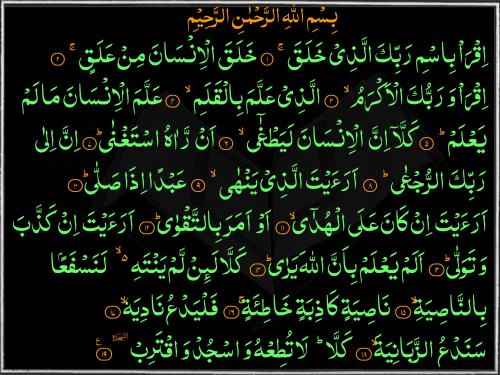 بِسْمِ اللّٰهِ الرَّحْمٰنِ الرَّحِيْمِ
اِقْرَاْ بِاسْمِ رَبِّكَ الَّذِیْ خَلَقَ ۚ ﴿۱﴾ خَلَقَ الْاِنْسَانَ مِنْ عَلَقٍ ۚ ﴿۲﴾
اِقْرَاْ وَ رَبُّكَ الْاَكْرَمُ ۙ ﴿۳﴾ الَّذِیْ عَلَّمَ بِالْقَلَمِ ۙ ﴿۴﴾ عَلَّمَ الْاِنْسَانَ مَا لَمْ
یَعْلَمْ ؕ ﴿۵﴾ كَلَّاۤ اِنَّ الْاِنْسَانَ لَیَطْغٰۤی ۙ ﴿۶﴾ اَنْ رَّاٰهُ اسْتَغْنٰی ؕ ﴿۷﴾ اِنَّ اِلٰی
رَبِّكَ الرُّجْعٰی ؕ ﴿۸﴾ اَرَءَیْتَ الَّذِیْ یَنْهٰی ۙ ﴿۹﴾ عَبْدًا اِذَا صَلّٰی ؕ ﴿۱۰﴾
اَرَءَیْتَ اِنْ كَانَ عَلَی الْهُدٰۤی ۙ ﴿۱۱﴾ اَوْ اَمَرَ بِالتَّقْوٰی ؕ ﴿۱۲﴾ اَرَءَیْتَ اِنْ كَذَّبَ
وَ تَوَلّٰی ؕ ﴿۱۳﴾ اَلَمْ یَعْلَمْ بِاَنَّ اللّٰهَ یَرٰی ؕ ﴿۱۴﴾ كَلَّا لَىِٕنْ لَّمْ یَنْتَهِ ۬ۙ لَنَسْفَعًۢا
بِالنَّاصِیَةِ ۙ ﴿۱۵﴾ نَاصِیَةٍ كَاذِبَةٍ خَاطِئَةٍ ۚ ﴿۱۶﴾ فَلْیَدْعُ نَادِیَهٗ ۙ ﴿۱۷﴾
سَنَدْعُ الزَّبَانِیَةَ ۙ ﴿۱۸﴾ كَلَّا ؕ لَا تُطِعْهُ وَ اسْجُدْ وَ اقْتَرِبْ ﴿۱۹﴾